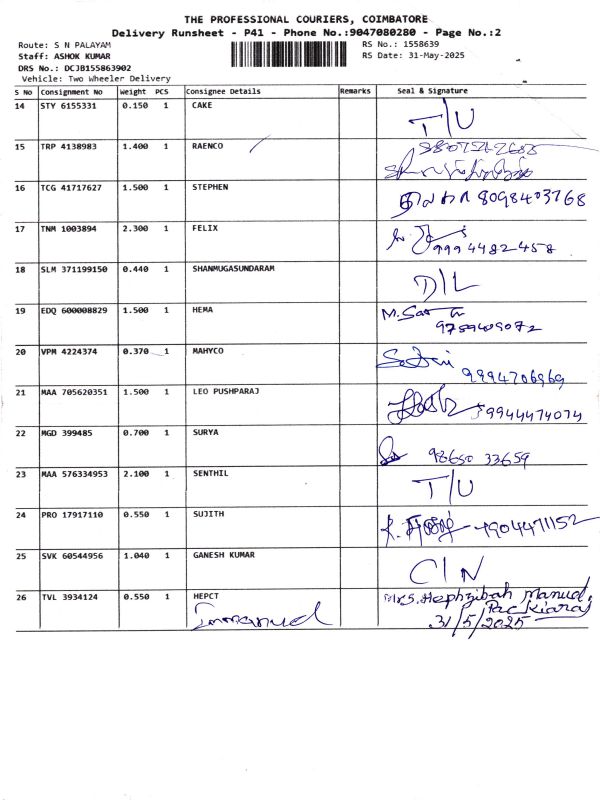 THE PROFESSIONAL COURIERS, COIMBATORE
Delivery Runsheet - P41 - Phone No.:9047080280 - Page No.:2
Route: S N PALAYAM
RS No.: 1558639
Staff: ASHOK KUMAR
RS Date: 31-May-2025
DRS No.: DCJB155863902
Vehicle: Two Wheeler Delivery
S No Consignment No Weight PCS Consignee Details Remarks Seal & Signature
14 STY 6155331 0.150 1 CAKE T/U
15 TRP 4138983 1.400 1 RAENCO
16 TCG 41717627 1.500 1 STEPHEN 8098403768
17 TNM 1003894 2.300 1 FELIX 9994482458
18 SLM 371199150 0.440 1 SHANMUGASUNDARAM D/L
19 EDQ 600008829 1.500 1 HEMA
20 VPM 4224374 0.370 1 MAHYCO 9994706969
21 MAA 705620351 1.500 1 LEO PUSHPARAJ 9944474074
22 MGD 399485 0.700 1 SURYA 98650 33659
23 MAA 576334953 2.100 1 SENTHIL T/U
24 PRO 17917110 0.550 1 SUJITH
25 SVK 60544956 1.040 1 GANESH KUMAR C/N
26 TVL 3934124 0.550 1 HEPCT Mrs. Hephzibah Manuel.
Emmanuel
31/5/2025